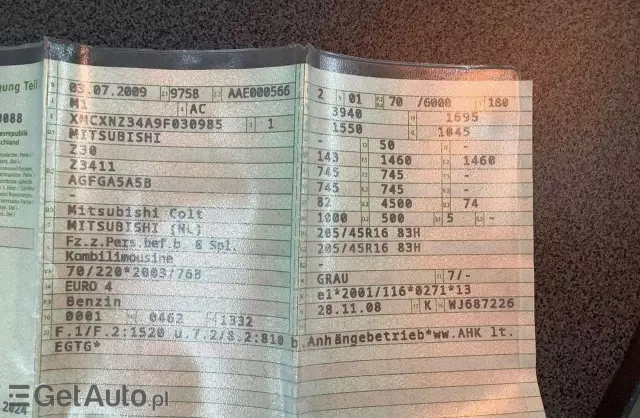 nung Teil
0088
03.07.2009 9758 AAE000566
Mi AC
XMCXNZ34A9F030985 1
MITSUBISHI
Z30
Z3411
AGFGA5A5B
-
Mitsubishi Colt
MITSUBISHI (NL)
Fz.z.Pers.bef.b. 8 Spl.
Kombilimousine
70/220*2003/76B
EURO 4
Benzin
0001 0462 1332
2 01 70 /6000 180
3940 1695
1550 1045
- 50 -
143 1460 1460
745 745 -
745 745 -
82 4500 74
1000 500 5 -
205/45R16 83H
205/45R16 83H
-
-
GRAU 7/-
e1*2001/116*0271*13
28.11.08 K WJ687226
F.1/F.2:1520 u.7.2/8.2:810 b.Anhängebetrieb*ww.AHK lt.
EGTG*
2024
GetAuto.pl